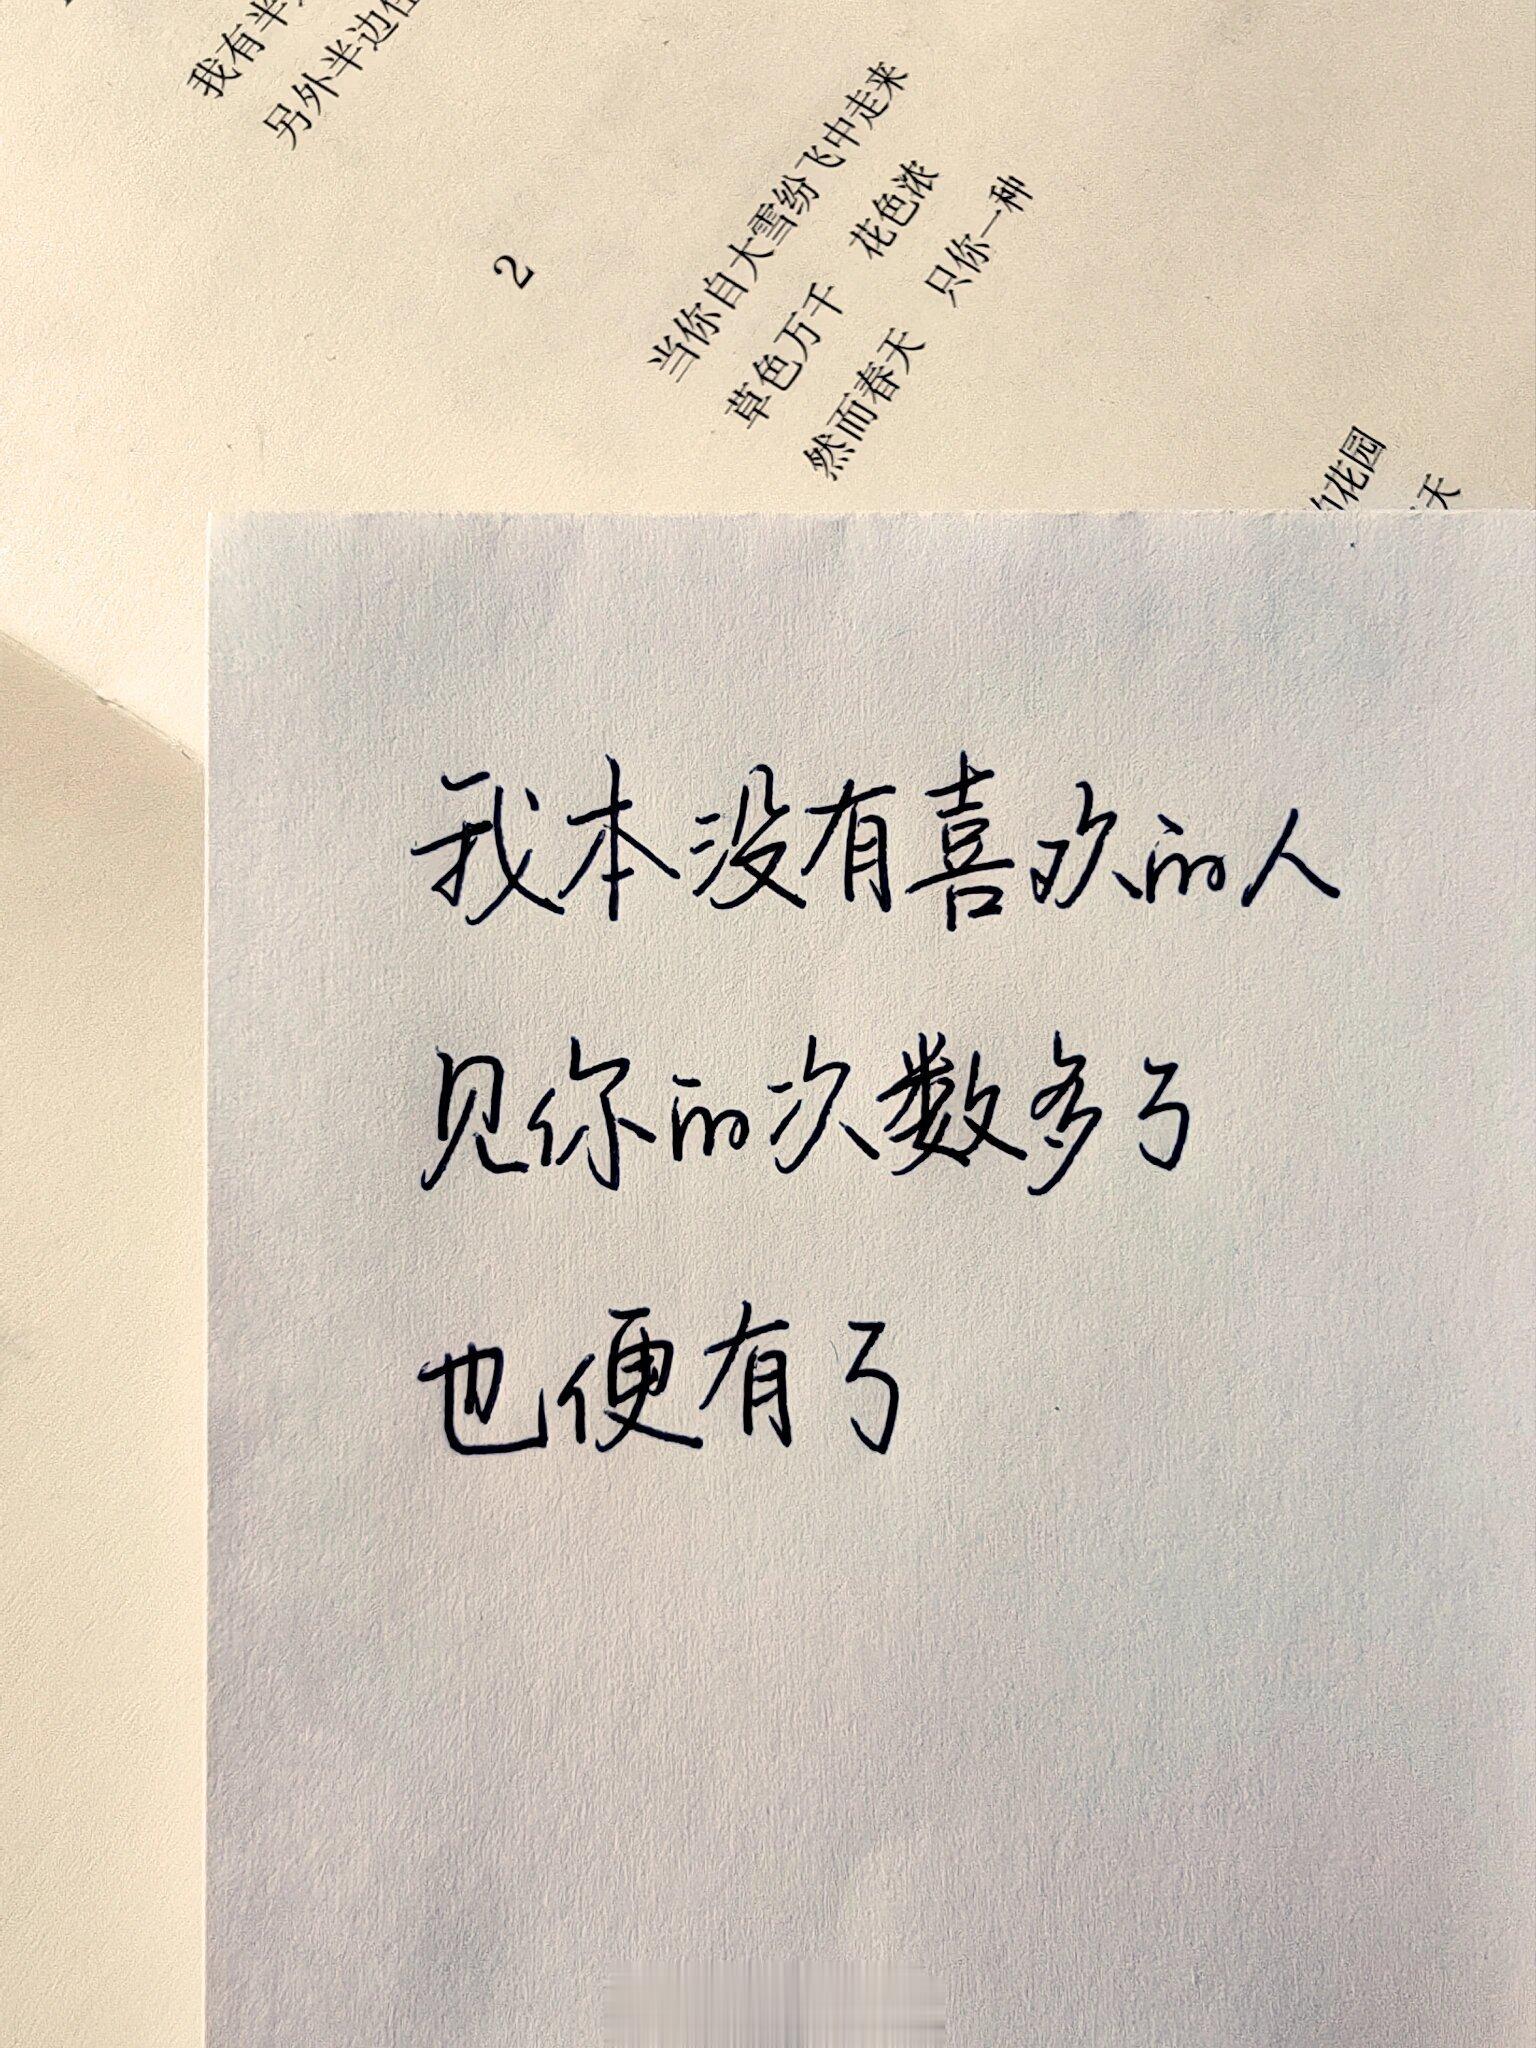 我有半
另外半边住
2
当你自大雪纷飞中走来
草色万千　花色浓
然而春天　只你一种
花园
天
我本没有喜欢的人
见你的次数多了
也便有了